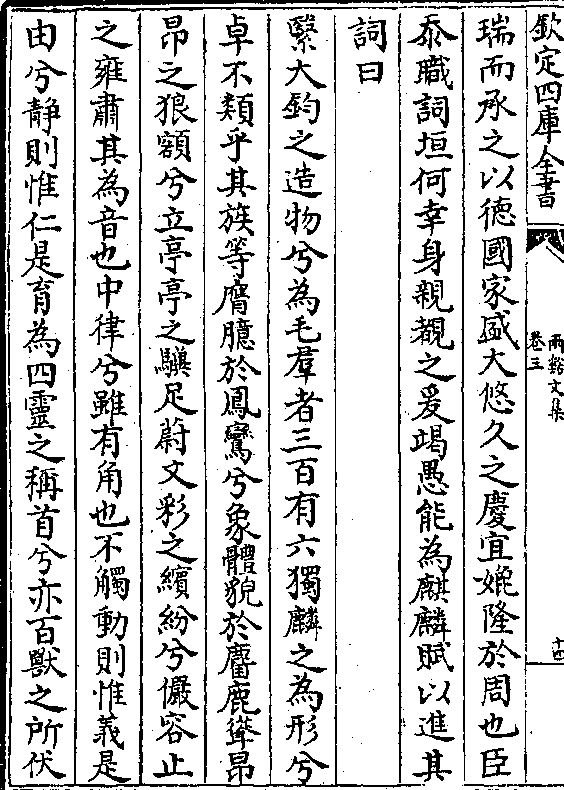 欽定四庫全書
兩谿文集
卷三
十四
瑞而承之以德國家盛大悠久之慶宜媲隆於周也臣
忝職詞垣何幸身親覩之爰竭愚能為麒麟賦以進其
詞曰
緊大鈞之造物兮為毛羣者三百有六獨麟之為形兮
卓不類乎其族等膺臆於鳳鸞兮象體貌於麕鹿聳昂
昂之狼額兮立亭亭之驥足蔚文彩之繽紛兮儼容止
之雍肅其為音也中律兮雖有角也不觸動則惟義是
由兮靜則惟仁是育為四靈之稱首兮亦百獸之所伏